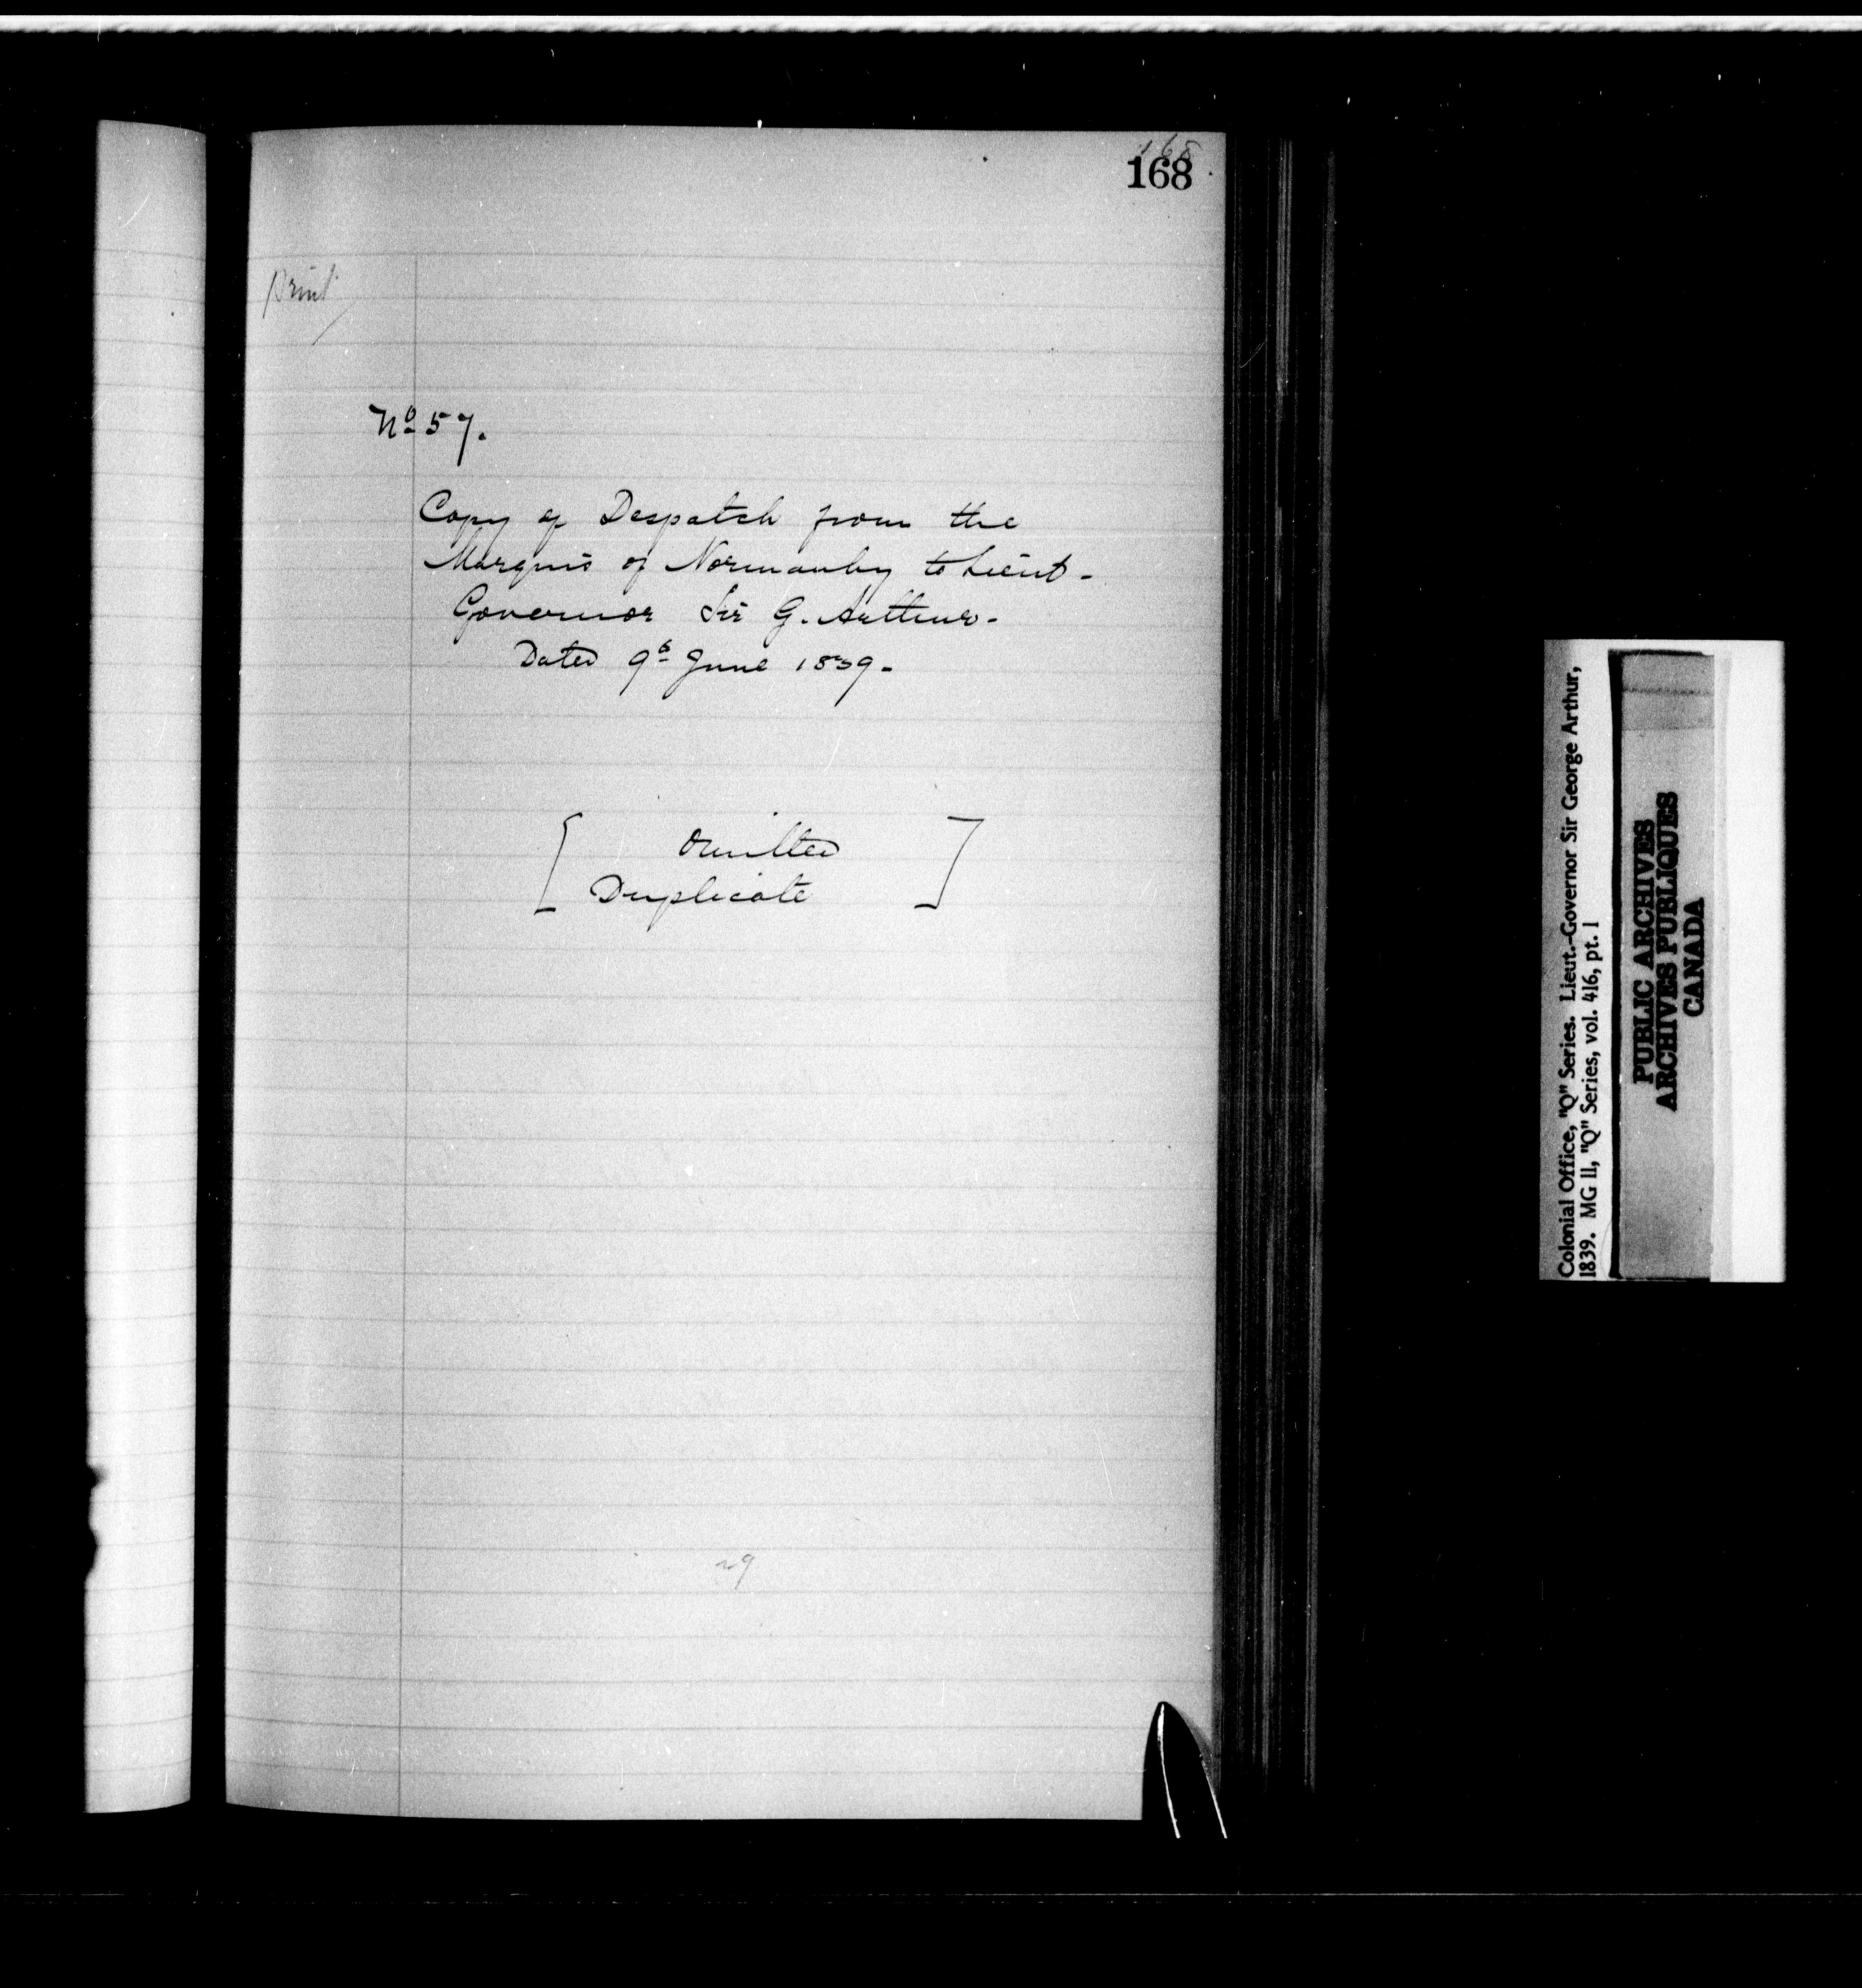 168
168
Print
No 57.
Copy of Despatch from the
Marquis of Normanby to Lieut-
Governor Sir G. Arthur-
Dated 9th June 1839-
[ Omitted
Duplicate ]
29
Colonial Office, "Q" Series. Lieut.-Governor Sir George Arthur,
1839. MG 11, "Q" Series, vol. 416, pt. 1
PUBLIC ARCHIVES
ARCHIVES PUBLIQUES
CANADA